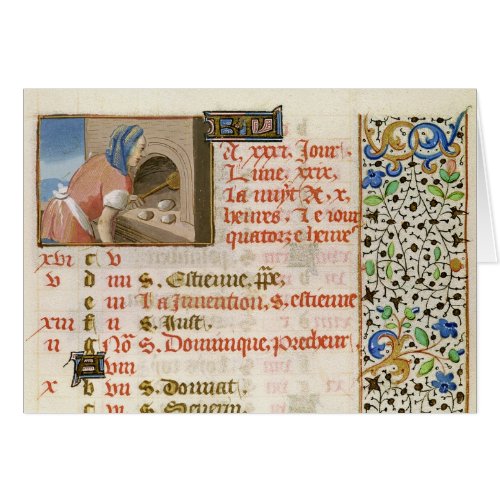 A. xxxi. Jour.
Lune. xxix.
La nuyt A. x.
heures. Le iour
quatorze heures
xvi c v
v d iiii S. Estienne. ppe.
e iii La Invention. S. estienne
xiii f ii S. Iust.
ii g No S. Dominique. precheur
A viii
x b vii S. Donnat.
c S. Severin.